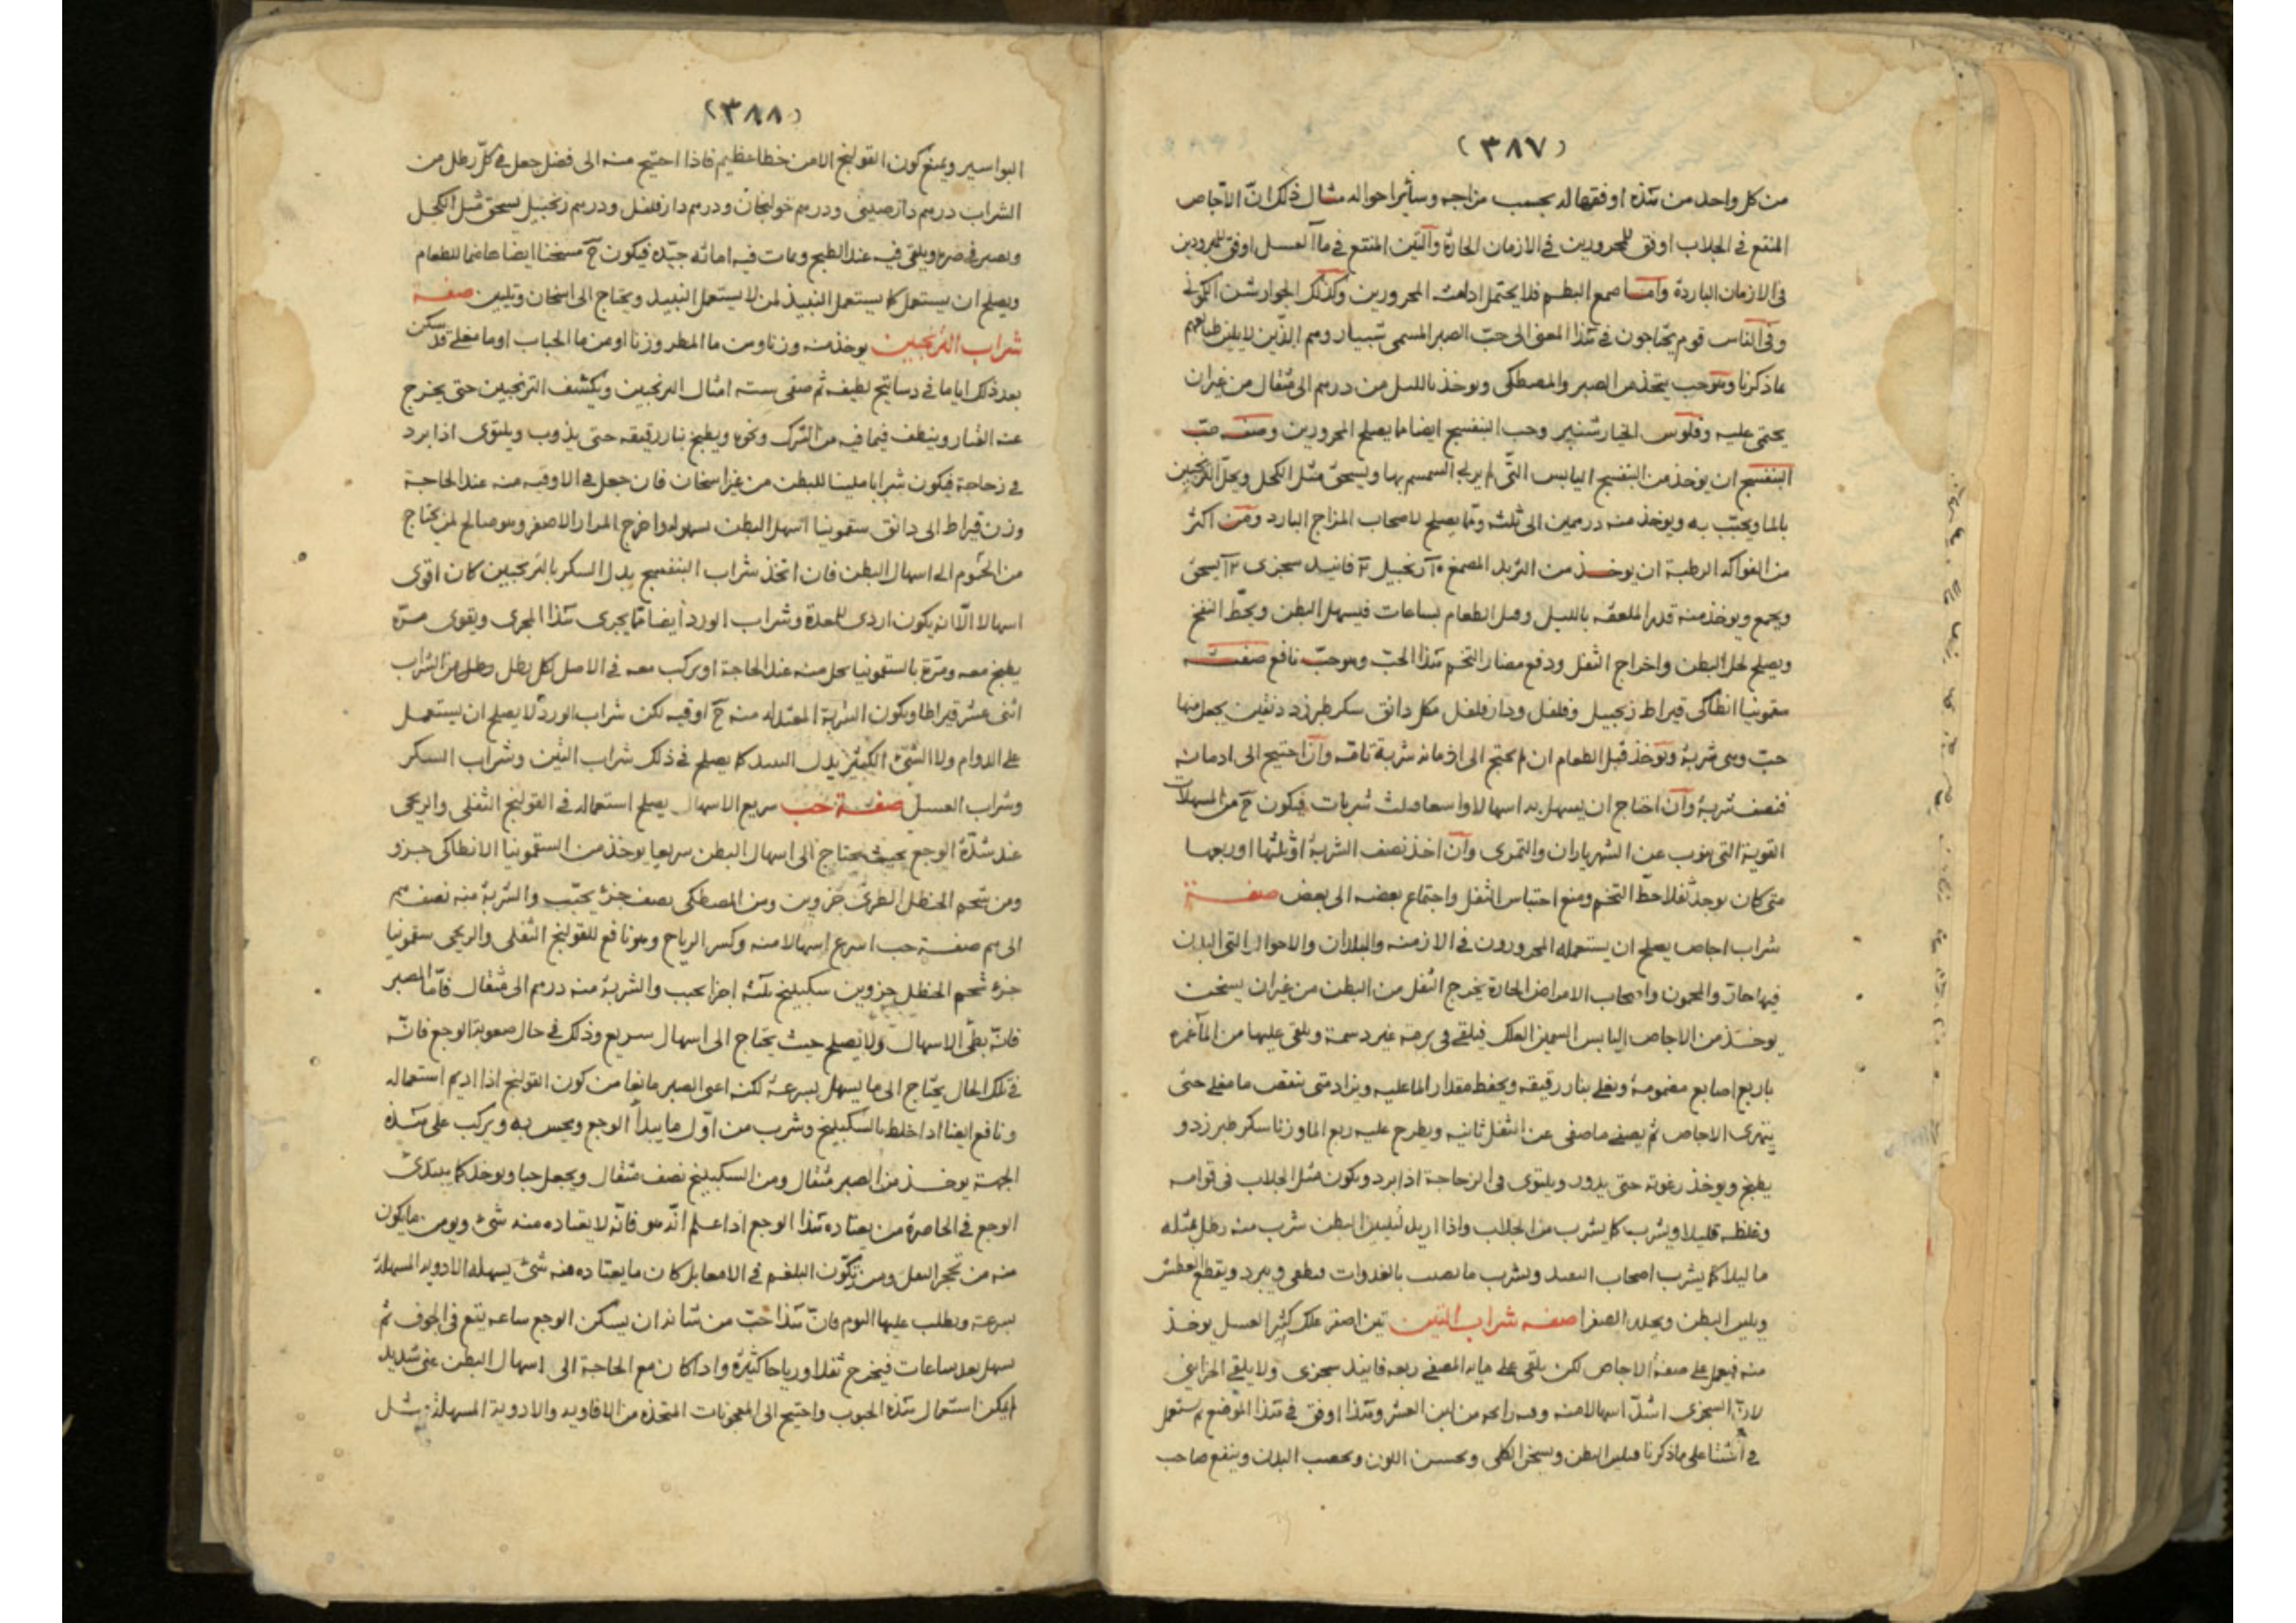 (٣٨٧)
من كل واحد من هذه اوفقها له بحسب مزاجه وسائر احواله مثال ذلك انّ الاجاص
المنقع فى الجلاب اوفق للمحرورين فى الازمان الحارة والتين المنقع فى ماء العسل اوفق للمبرودين
فى الازمان الباردة وامـا صمغ البطم فلا يحتمل ادامته المحرورين وكذلك الجوارشن الكمونى
وفى الناس قوم يحتاجون فى هذا المعنى الى حبّ الصبر المسمى شبيار وهم الذين لا يلين طبايعهم
ماذكرنا وهو حب يتخذ من الصبر والمصطكى ويوخذ بالليل من درهم الى مثقال من غيران
يحتمى عليه وفلوس الخيارشنبر وحب البنفسج ايضا مما يصلح للمحرورين وصفـة حبّ
البنفسج ان يوخذ من البنفسج اليابس الذى لم يربى السمسم بها ويسحق مثل الكحل ويحل الترنجبين
بالما ويحبّب به ويوخذ منه درهمين الى ثلثه وممّا يصلح لاصحاب المزاج البارد ومن اكثر
من الفواكه الرطبة ان يوخـذ من التربد المصمغ ١٠ زنجبيل ٣ فانيـد سجزى ١٣ يسحق
ويجمع ويوخذ منه قدر الملعقه بالليل وقبل الطعام بساعات فيسهل البطن ويحطّ النفخ
ويصلح لحل البطن واخراج الثفل ودفع مضار التخم هذا الحبّ وهو حبّ نافع صفتـه
سقمونيا انطاكى قيراط زنجبيل وفلفل ودارفلفل مكل دانق سكر طبرزد دنقين يجعل منها
حبّ وهى شربة ويوخذ قبل الطعام ان لم يحتج الى ادمانه شربة تامّه وان احتيج الى ادمانه
فنصف شربة وان احتاج ان يسهل به اسهالا واسعا فثلث شربات فيكون ح من المسهلات
القوية التى تنوب عن الشهرياران والتمرى وان اخذ نصف الشربة او ثلثها او ربعها
متى كان يوجد ثفلا حطّ التخم ومنع احتباس الثفل واجتماع بعضه الى بعض صفـة
شراب اجاص يصلح ان يستعمله المحرورون فى الازمنه والبلدان والاحوال التى البدن
فيها حارّ والمحمون واصحاب الامراض الحارة يخرج الثفل من البطن من غيران يسخن
يوخـذ من الاجاص اليابس السمين العلك فيلقى فى برمة غير دسمة ويلقى عليها من الما غمره
باربع اصابع مضمومة ويغلى بنار رقيقه ويحفظ مقدار الما عليه ويزاد متى نقص ما مغلى حتى
يتهرى الاجاص ثم يصفى ماصفى عن الثفل ثانيه ويطرح عليه ربع الما وزنا سكر طبرزد و
يطبخ ويوخذ رغوته حتى يدور ويلتوى فى الزجاجة اذا برد ويكون مثل الجلاب فى قوامه
وغلظه قليلا ويشرب كما يشرب من الجلاب واذا اريد تليين البطن شرب منه رطل بمثله
ما ليلا كما يشرب اصحاب النبيذ ويشرب ما يصب بالغدوات فيطفى ويبرد ويقطع العطش
ويلين البطن ويحدر الصفرا صفه شراب التين تين اصفر علك كثير العسل يوخذ
منه فيعمل على صفة الاجاص لكن يلقى على مايه المصفى ربعه فانيذ سجزى ولا يلقى الخزاينى
لانّ السجزى اشدّ اسهالا منه وهذا اوفق فى هذا الموضع ثم يستعمل
فى الشتا على ماذكرنا فيلين البطن ويسخن الكلى ويحسن اللون ويخصب البدن وينفع صاحب
(٣٨٨)
البواسير ويمنع كون القولنج الامن خطا عظيم فاذا احتيج منه الى فضل جعل فى كلّ رطل من
الشراب درهم دارصينى ودرهم خولنجان ودرهم دارفلفل ودرهم زنجبيل يسحق مثل الكحل
ويصير فى صرة ويلقى فيه عند الطبخ ويمات فيه اماته جيّده فيكون ح مسخنا ايضا هاضما للطعام
ويصلح ان يستعمل كما يستعمل النبيذ لمن لا يستعمل النبيد ويحتاج الى اسخان وتليين صفـة
شراب الترنجبين يوخذ منه وزنا ومن ما المطر وزنا او من ما الحباب او ما مغلى قد سكن
بعد ذلك اياما فى دساتيج لطيفه ثم صفى سته امثال الترنجبين ويكشف الترنجبين حتى يخرج
عنه الغبار وينظف فيما فيه من الشوك ونحوه ويطبخ بنار رقيقه حتى يذوب ويلتوى اذا برد
فى زجاجة فيكون شرابا ملينا للبطن من غير اسخان فان جعل فى الاوقيه منه عند الحاجة
وزن قيراط الى دانق سقمونيا اسهل البطن بسهوله واخرج المرار الاصفر وهو صالح لمن يحتاج
من المحموم الى اسهال البطن فان اتخذ شراب البنفسج بدل السكر بالترنجبين كان اقوى
اسهالا الّا انه يكون اردى للمعدة وشراب الورد ايضا مما يجرى هذا المجرى ويقوى مرّة
يطبخ معه ومرّة بالسقمونيا يحل منه عند الحاجة او يركب معه فى الاصل لكل رطل من الشراب
اثنى عشر قيراطا ويكون الشربة المعتدله منه ح اوقيه لكن شراب الورد لا يصلح ان يستعمل
على الدوام ولا الشئ الكثير بدل النبيذ كما يصلح فى ذلك شراب التين وشراب السكر
وشراب العسل صفـة حب سريع الاسهال يصلح استعماله فى القولنج الثفلى والريحى
عند شدّة الوجع بحيث يحتاج الى اسهال البطن سريعا يوخذ من السقمونيا الانطاكى جزو
ومن شحم الحنظل الطرى جزوين ومن المصطكى نصف جزء يحبّب والشربة منه نصف هم
الى هم صفـة حب اسرع اسهالا منه وكسر الرياح وهو نافع للقولنج الثفلى والريحى سقمونيا
جزء شحم الحنظل جزوين سكبينج ثلثه اجزا يحبب والشربة منه درهم الى مثقال فامّا الصبر
فانّه بطى الاسهال ولا يصلح حيث يحتاج الى اسهال سريع وذلك فى حال صعوبة الوجع فانّه
فى تلك الحال يحتاج الى ما يسهل بسرعة لكنه اعنى الصبر مانعا من كون القولنج اذا اديم استعماله
ونافع ايضا اذا خلط بالسكبينج وشرب من اوّل ما يبدأ الوجع ويحس به ويركب على هذه
الجهة يوخـذ من الصبر مثقال ومن السكبينج نصف مثقال ويجعل حبا ويوخذ كما يبتدى
الوجع فى الخاصرة من يعتاده هذا الوجع اذا علم انّه هو فانّه لا يعتاده منه شئ ويومن ما يكون
منه من تحجر الثفل ومن تكوّن البلغم فى الامعا بل كان ما يعتاده منه شئ يسهله الادويه المسهلة
بسرعة ويطلب عليها النوم فانّ هذا حبّ من شانه ان يسكن الوجع ساعه يقع فى الجوف ثم
يسهل بعد ساعات فيخرج ثفلا ورياحا كثيرة واذا كان مع الحاجة الى اسهال البطن غثى شديد
لم يكن استعمال هذه الحبوب واحتيج الى المعجونات المتخذه من الافاويه والادوية المسهلة مثـل